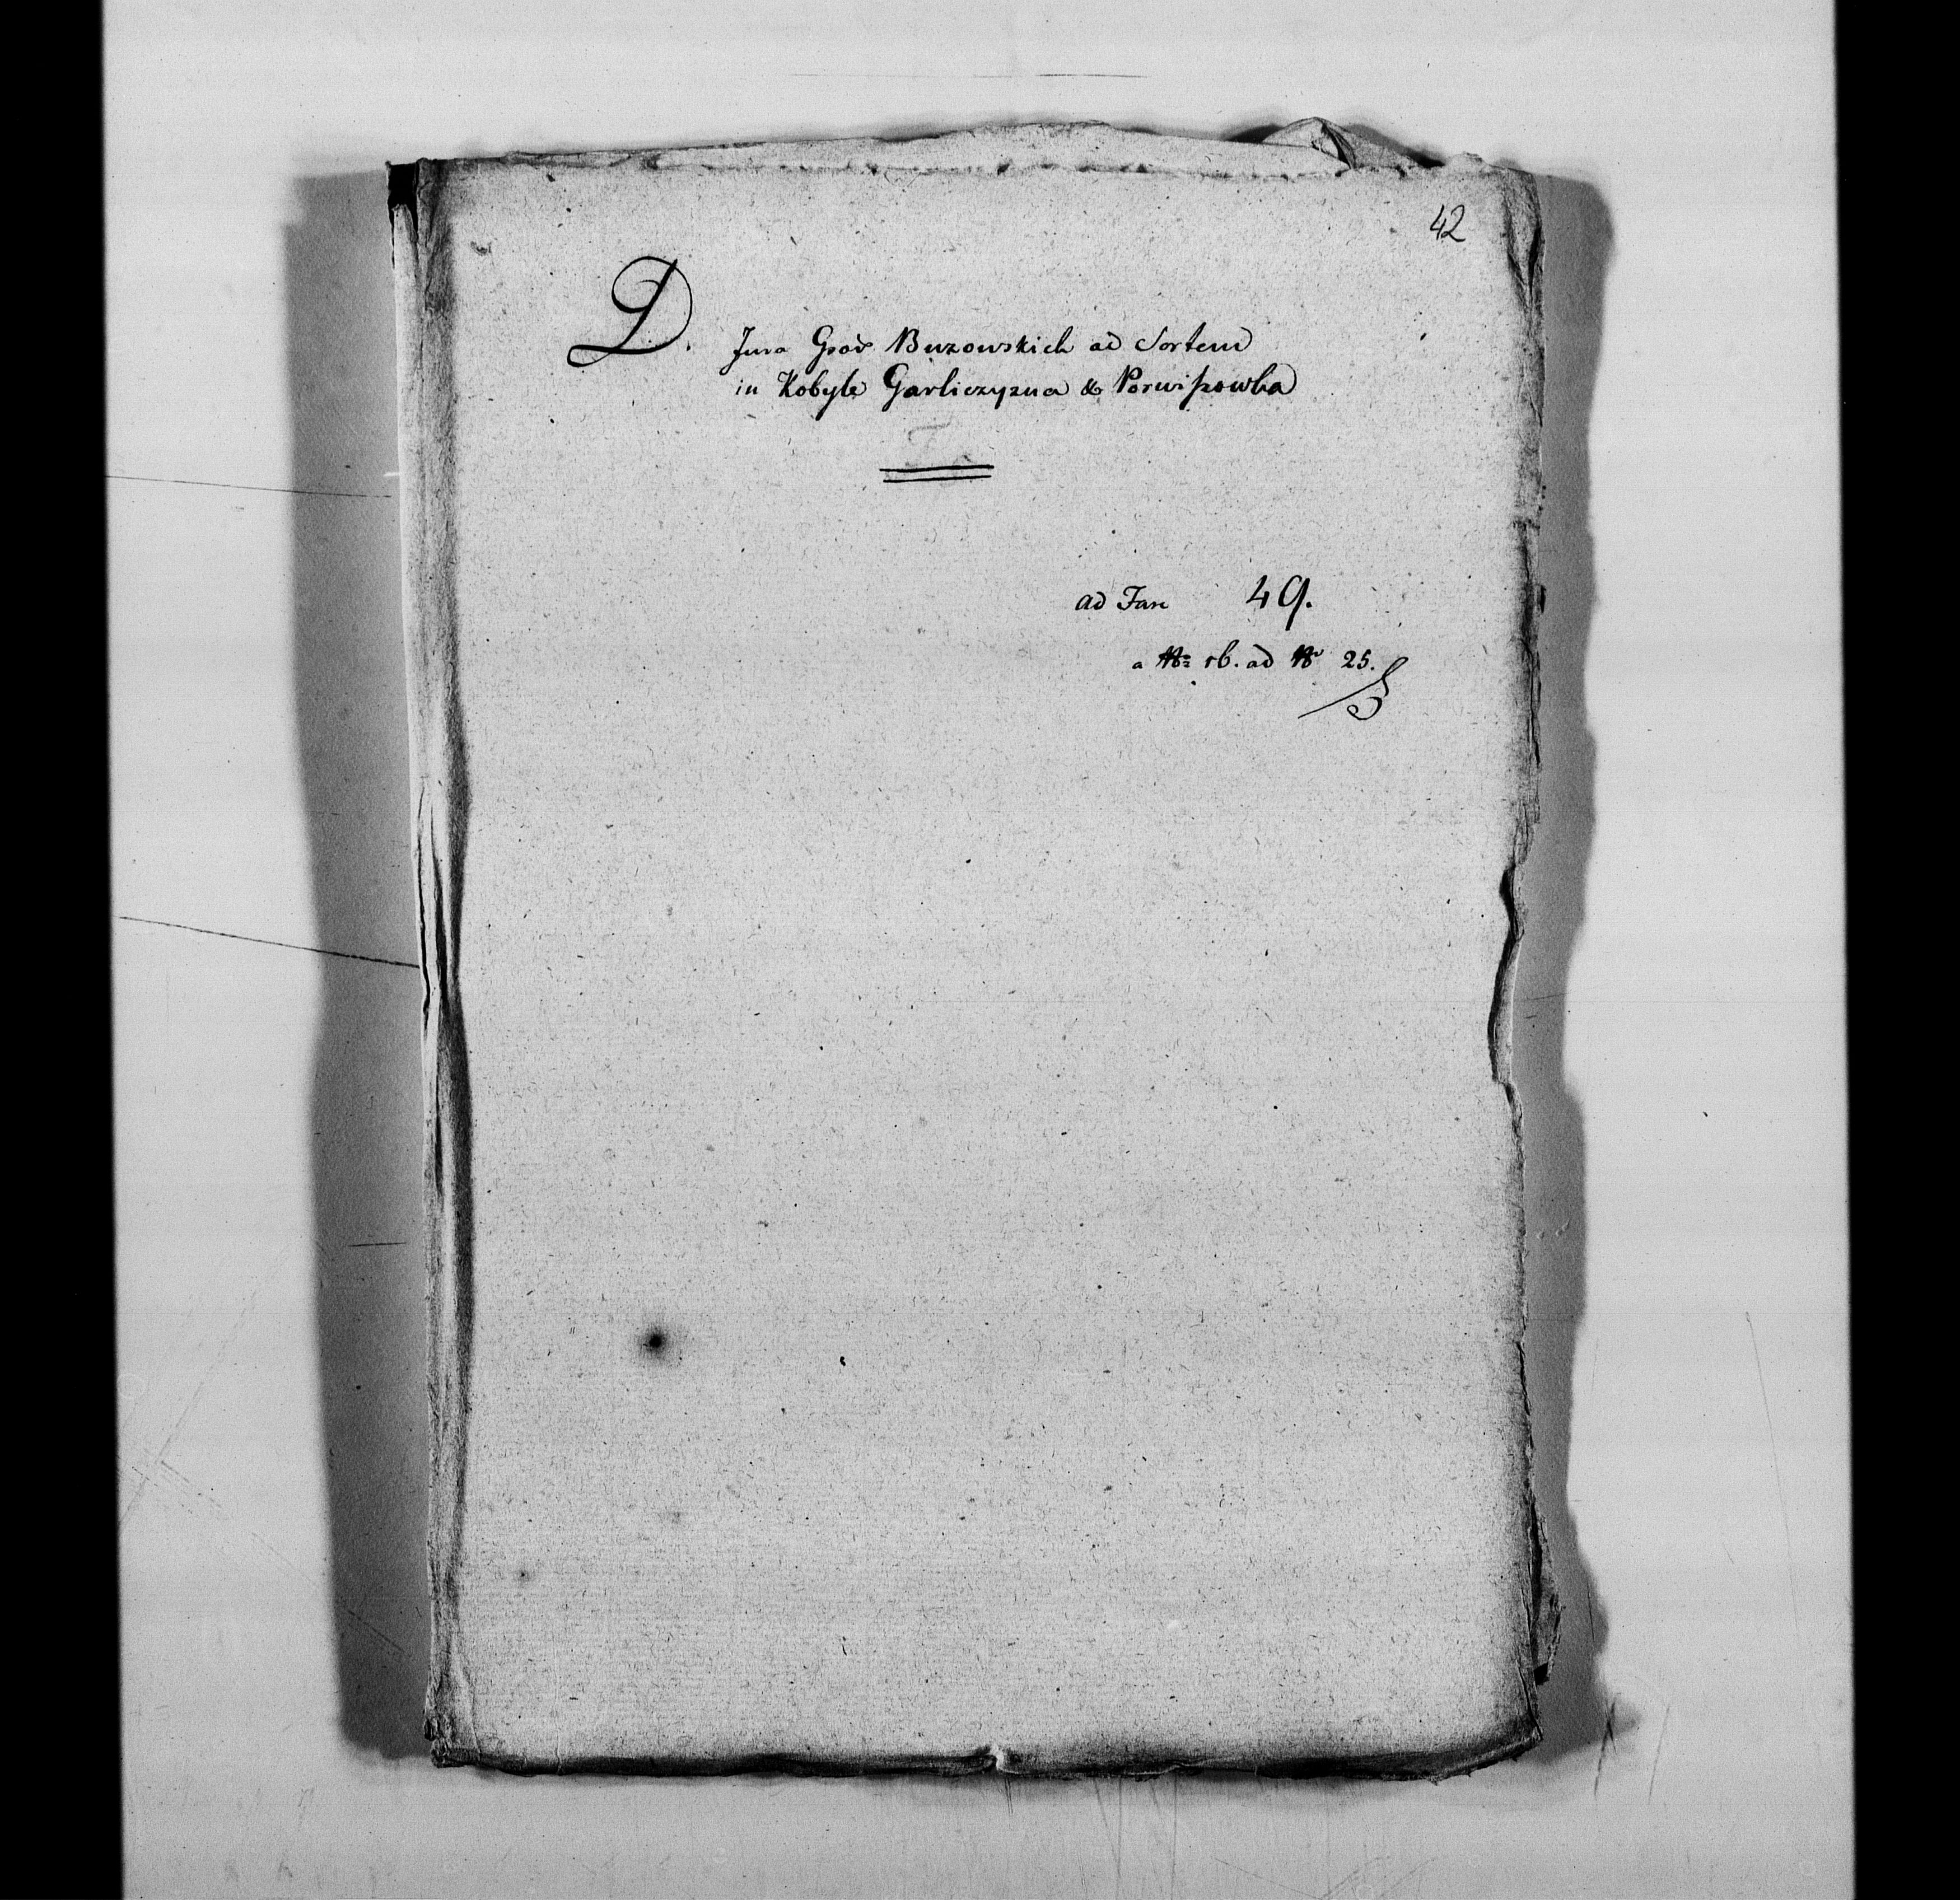 42
D. Jura Gnod Buzowskich ad Sortem
in Kobyle Garliczyzna & Porwiszowka
ad Fasc 49.
a No 16. ad No 25.